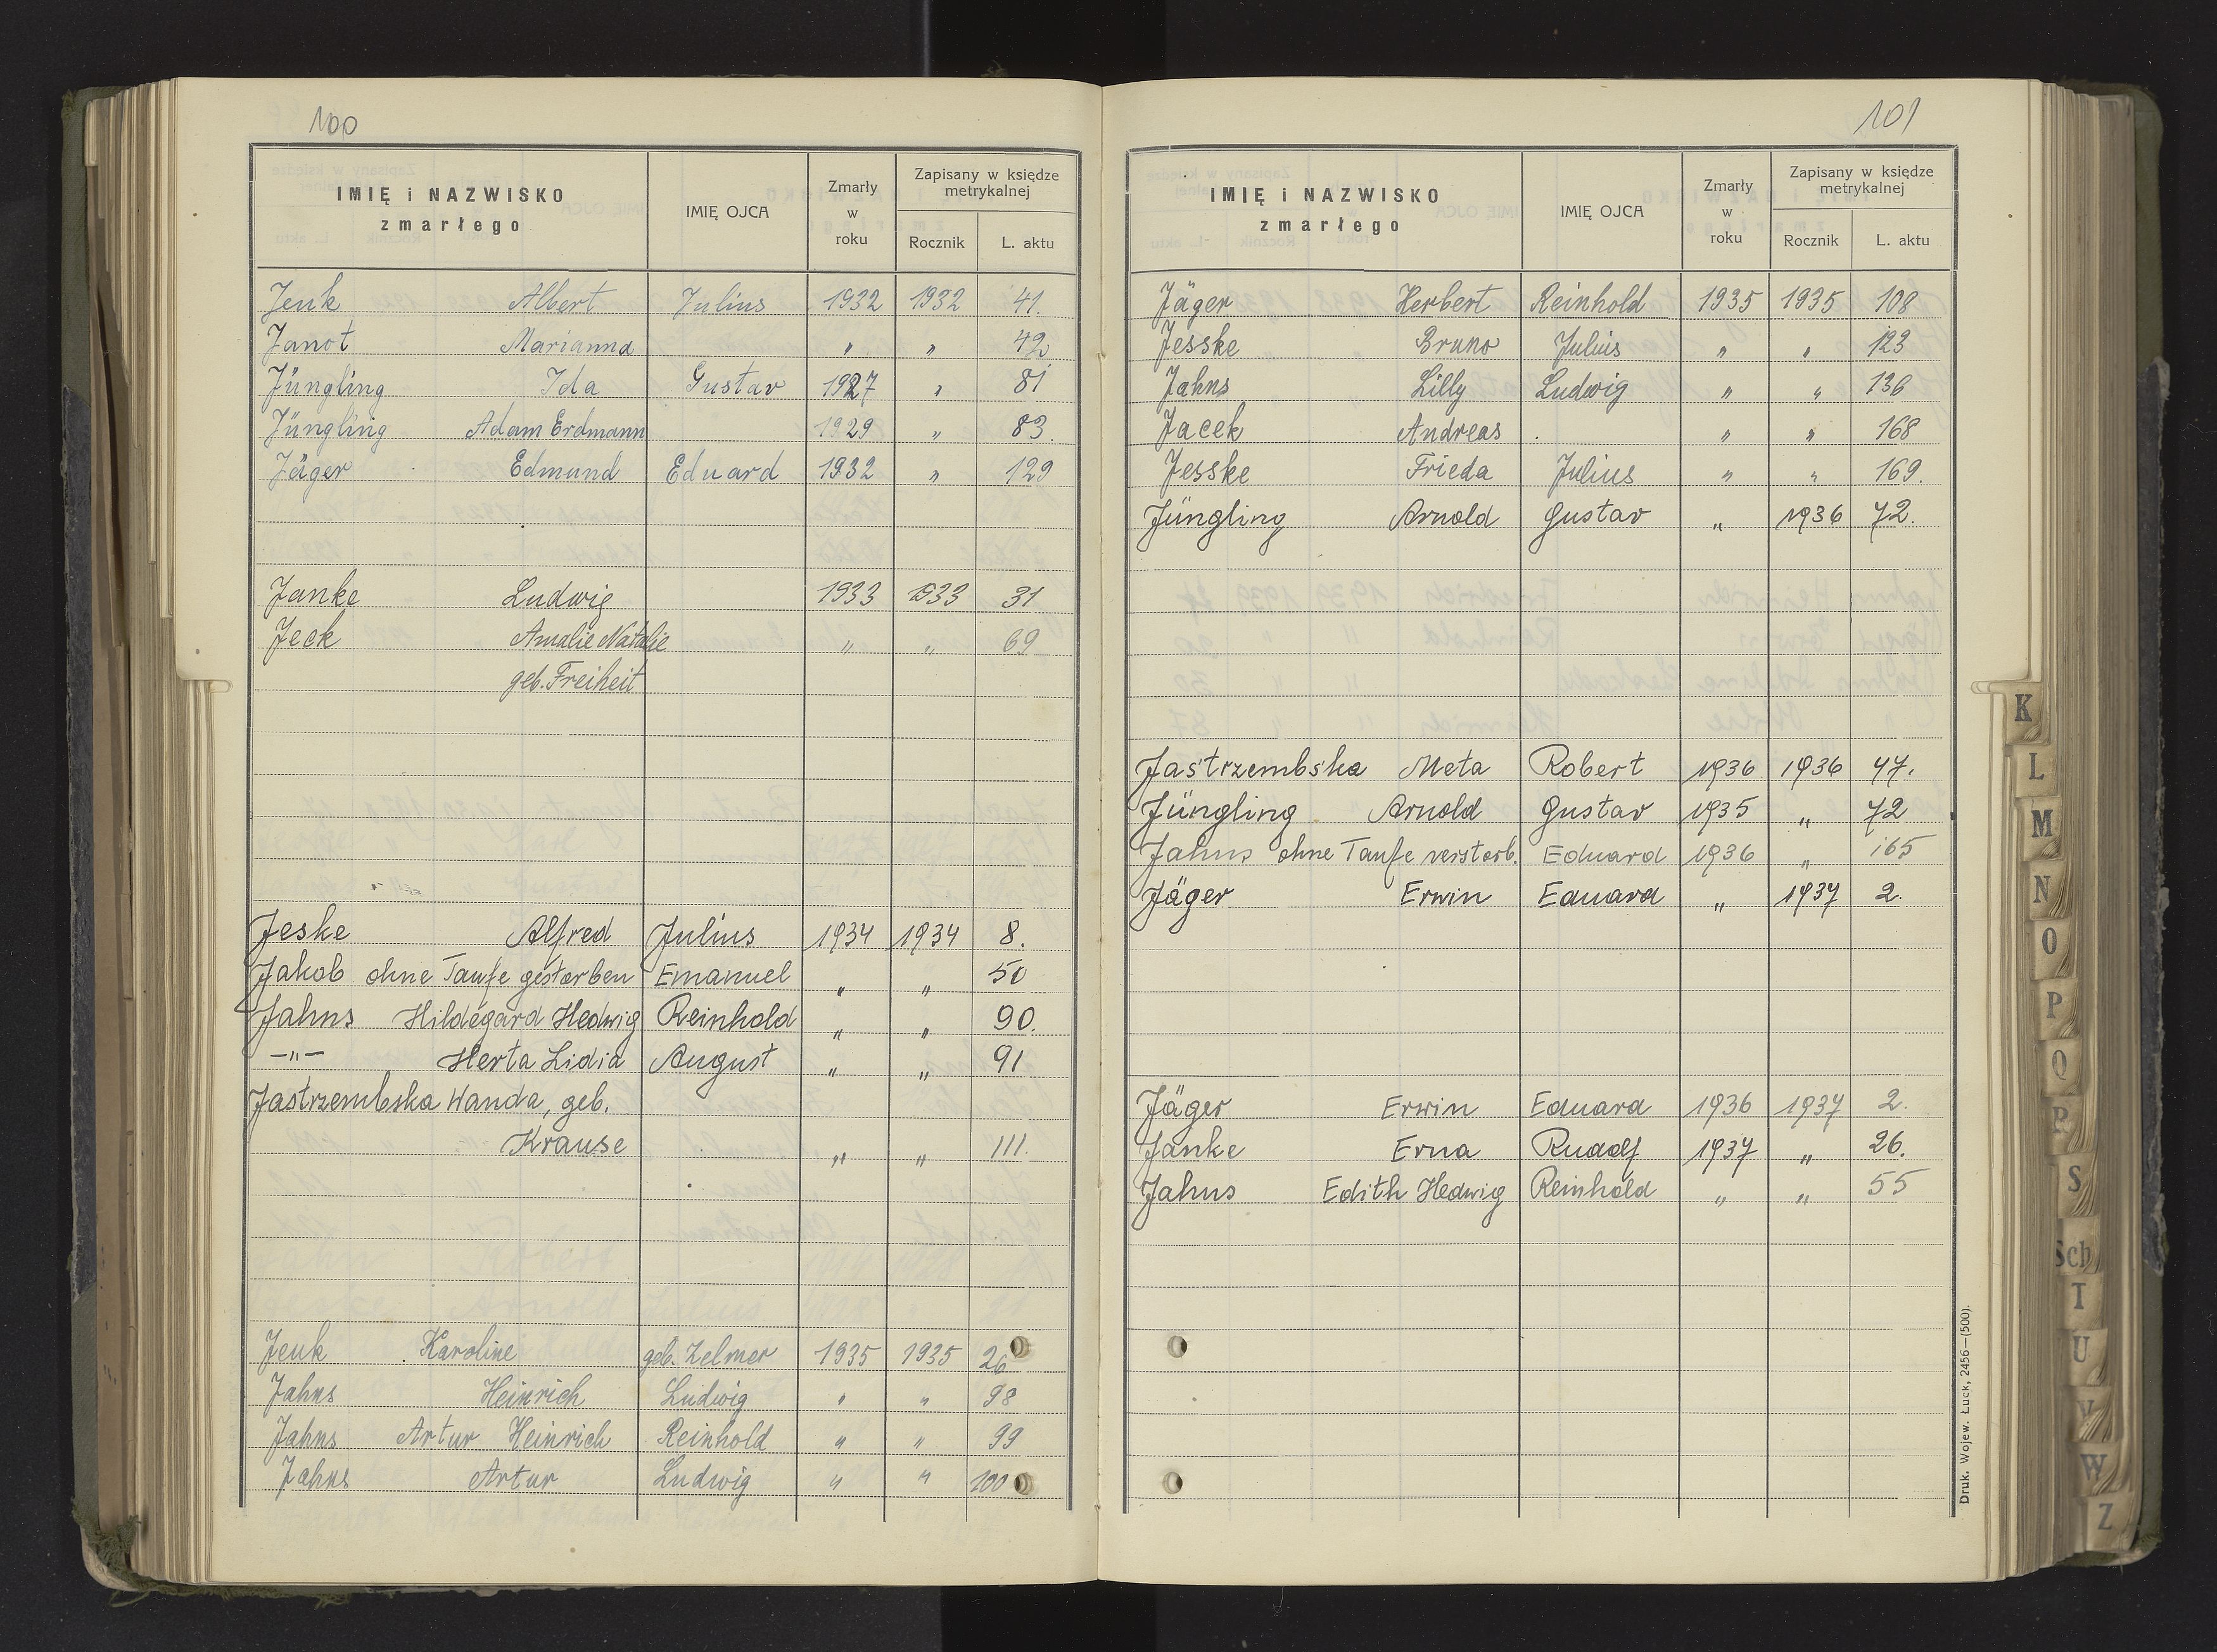 100
IMIĘ i NAZWISKO zmarłego IMIĘ OJCA Zmarły w roku Zapisany w księdze metrykalnej Rocznik L. aktu
Jenk Albert Julius 1932 1932 41.
Janot Marianna " " 42
Jüngling Ida Gustav 1927 " 81
Jüngling Adam Erdmann 1929 " 83.
Jäger Edmund Eduard 1932 " 129
Janke Ludwig 1933 1933 31
Jeck Amalie Natalie " " 69
geb. Freiheit
Jeske Alfred Julius 1934 1934 8.
Jakob ohne Taufe gestorben Emanuel " " 50
Jahns Hildegard Hedwig Reinhold " " 90.
—"— Herta Lidia August " " 91
Jastrzembska Wanda, geb.
Krause " " 111.
Jenk Karoline geb. Zelmer 1935 1935 26
Jahns Heinrich Ludwig " " 98
Jahns Artur Heinrich Reinhold " " 99
Jahns Artur Ludwig " " 100
101
IMIĘ i NAZWISKO zmarłego IMIĘ OJCA Zmarły w roku Zapisany w księdze metrykalnej Rocznik L. aktu
Jäger Herbert Reinhold 1935 1935 108
Jesske Bruno Julius " " 123
Jahns Lilly Ludwig " " 136
Jacek Andreas . " " 168
Jesske Frieda Julius " " 169.
Jüngling Arnold Gustav " 1936 72.
Jastrzembska Meta Robert 1936 1936 47.
Jüngling Arnold Gustav 1935 " 72
Jahns ohne Taufe verstorb. Eduard 1936 " 165
Jäger Erwin Eduard " 1937 2.
Jäger Erwin Eduard 1936 1937 2.
Janke Erna Rudolf 1937 " 26.
Jahns Edith Hedwig Reinhold " " 55
Druk. Wojew. Łuck, 2456—(500).
K
L
M
N
O
P
Q
R
S
Sch
T
U
V
W
Z